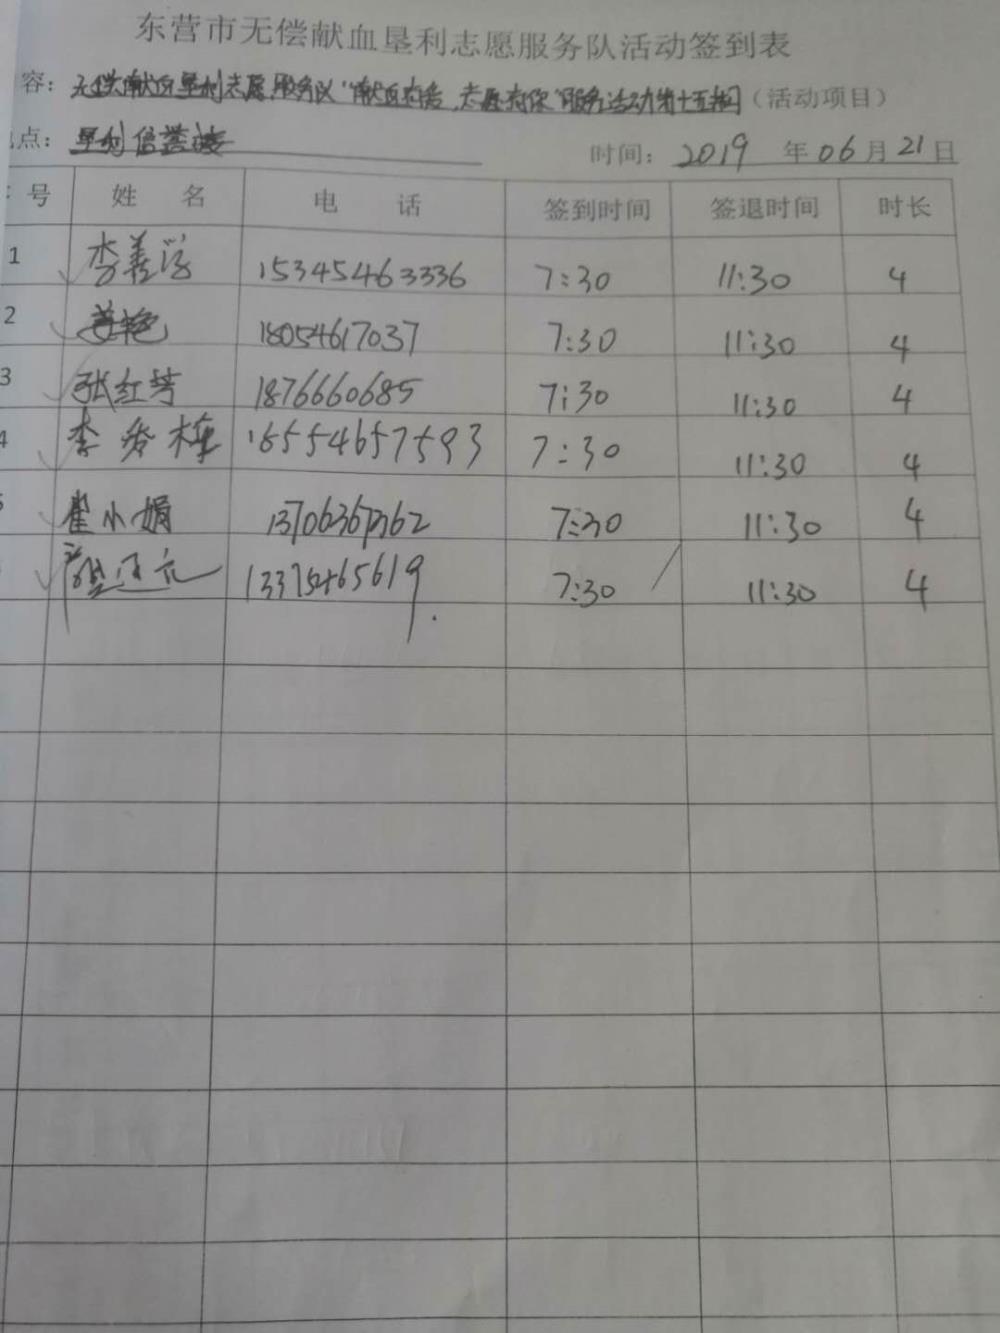 东营市无偿献血垦利志愿服务队活动签到表
容：无偿献血垦利志愿服务队“献血有爱，志愿有你”服务活动第十五期（活动项目）
点：垦利信誉楼 时间：2019年06月21日
号 姓 名 电 话 签到时间 签退时间 时长
1 李善 15345463336 7:30 11:30 4
2 18054617037 7:30 11:30 4
3 张红芳 1876660685 7:30 11:30 4
4 李秀梅 16554657593 7:30 11:30 4
崔小娟 13706367362 7:30 11:30 4
13375465619 7:30 11:30 4